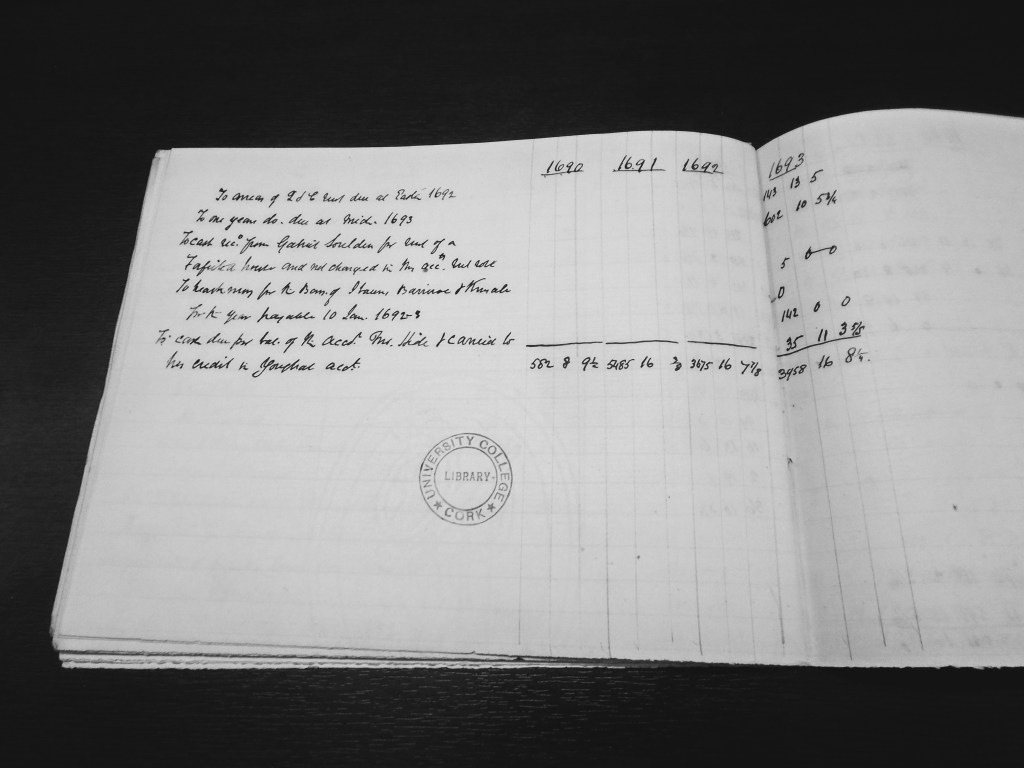 1690 1691 1692 1693
To arrears of rent due at Easter 1692 143 13 5
To one years do. due at Mich. 1693 602 10 5 3/4
To cash rec.d from Gabriel Soulden for rent of a
house and not charged in the acc.ts rent 5 0 0
To for the Bars. of Barriroe & Kinsale 0
for the year payable 10 Jan. 1692-3 142 0 0
To cash due per bal. of the acct. Mr. Hide & carried to 35 11 3
his credit in Youghal acct. 562 8 9 1/2 5485 16 3675 16 7 7/8 3958 16 8
UNIVERSITY COLLEGE
LIBRARY
CORK